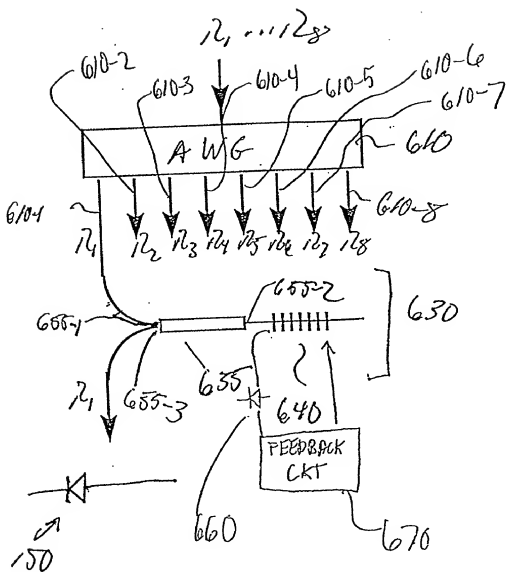 λ1 ....λ8
610-2
610-3
610-4
610-5
610-6
610-7
AWG
610
610-1
610-8
λ1
λ2
λ3
λ4
λ5
λ6
λ7
λ8
655-1
655-2
630
655
λ1
655-3
640
FEEDBACK
CKT
150
660
670